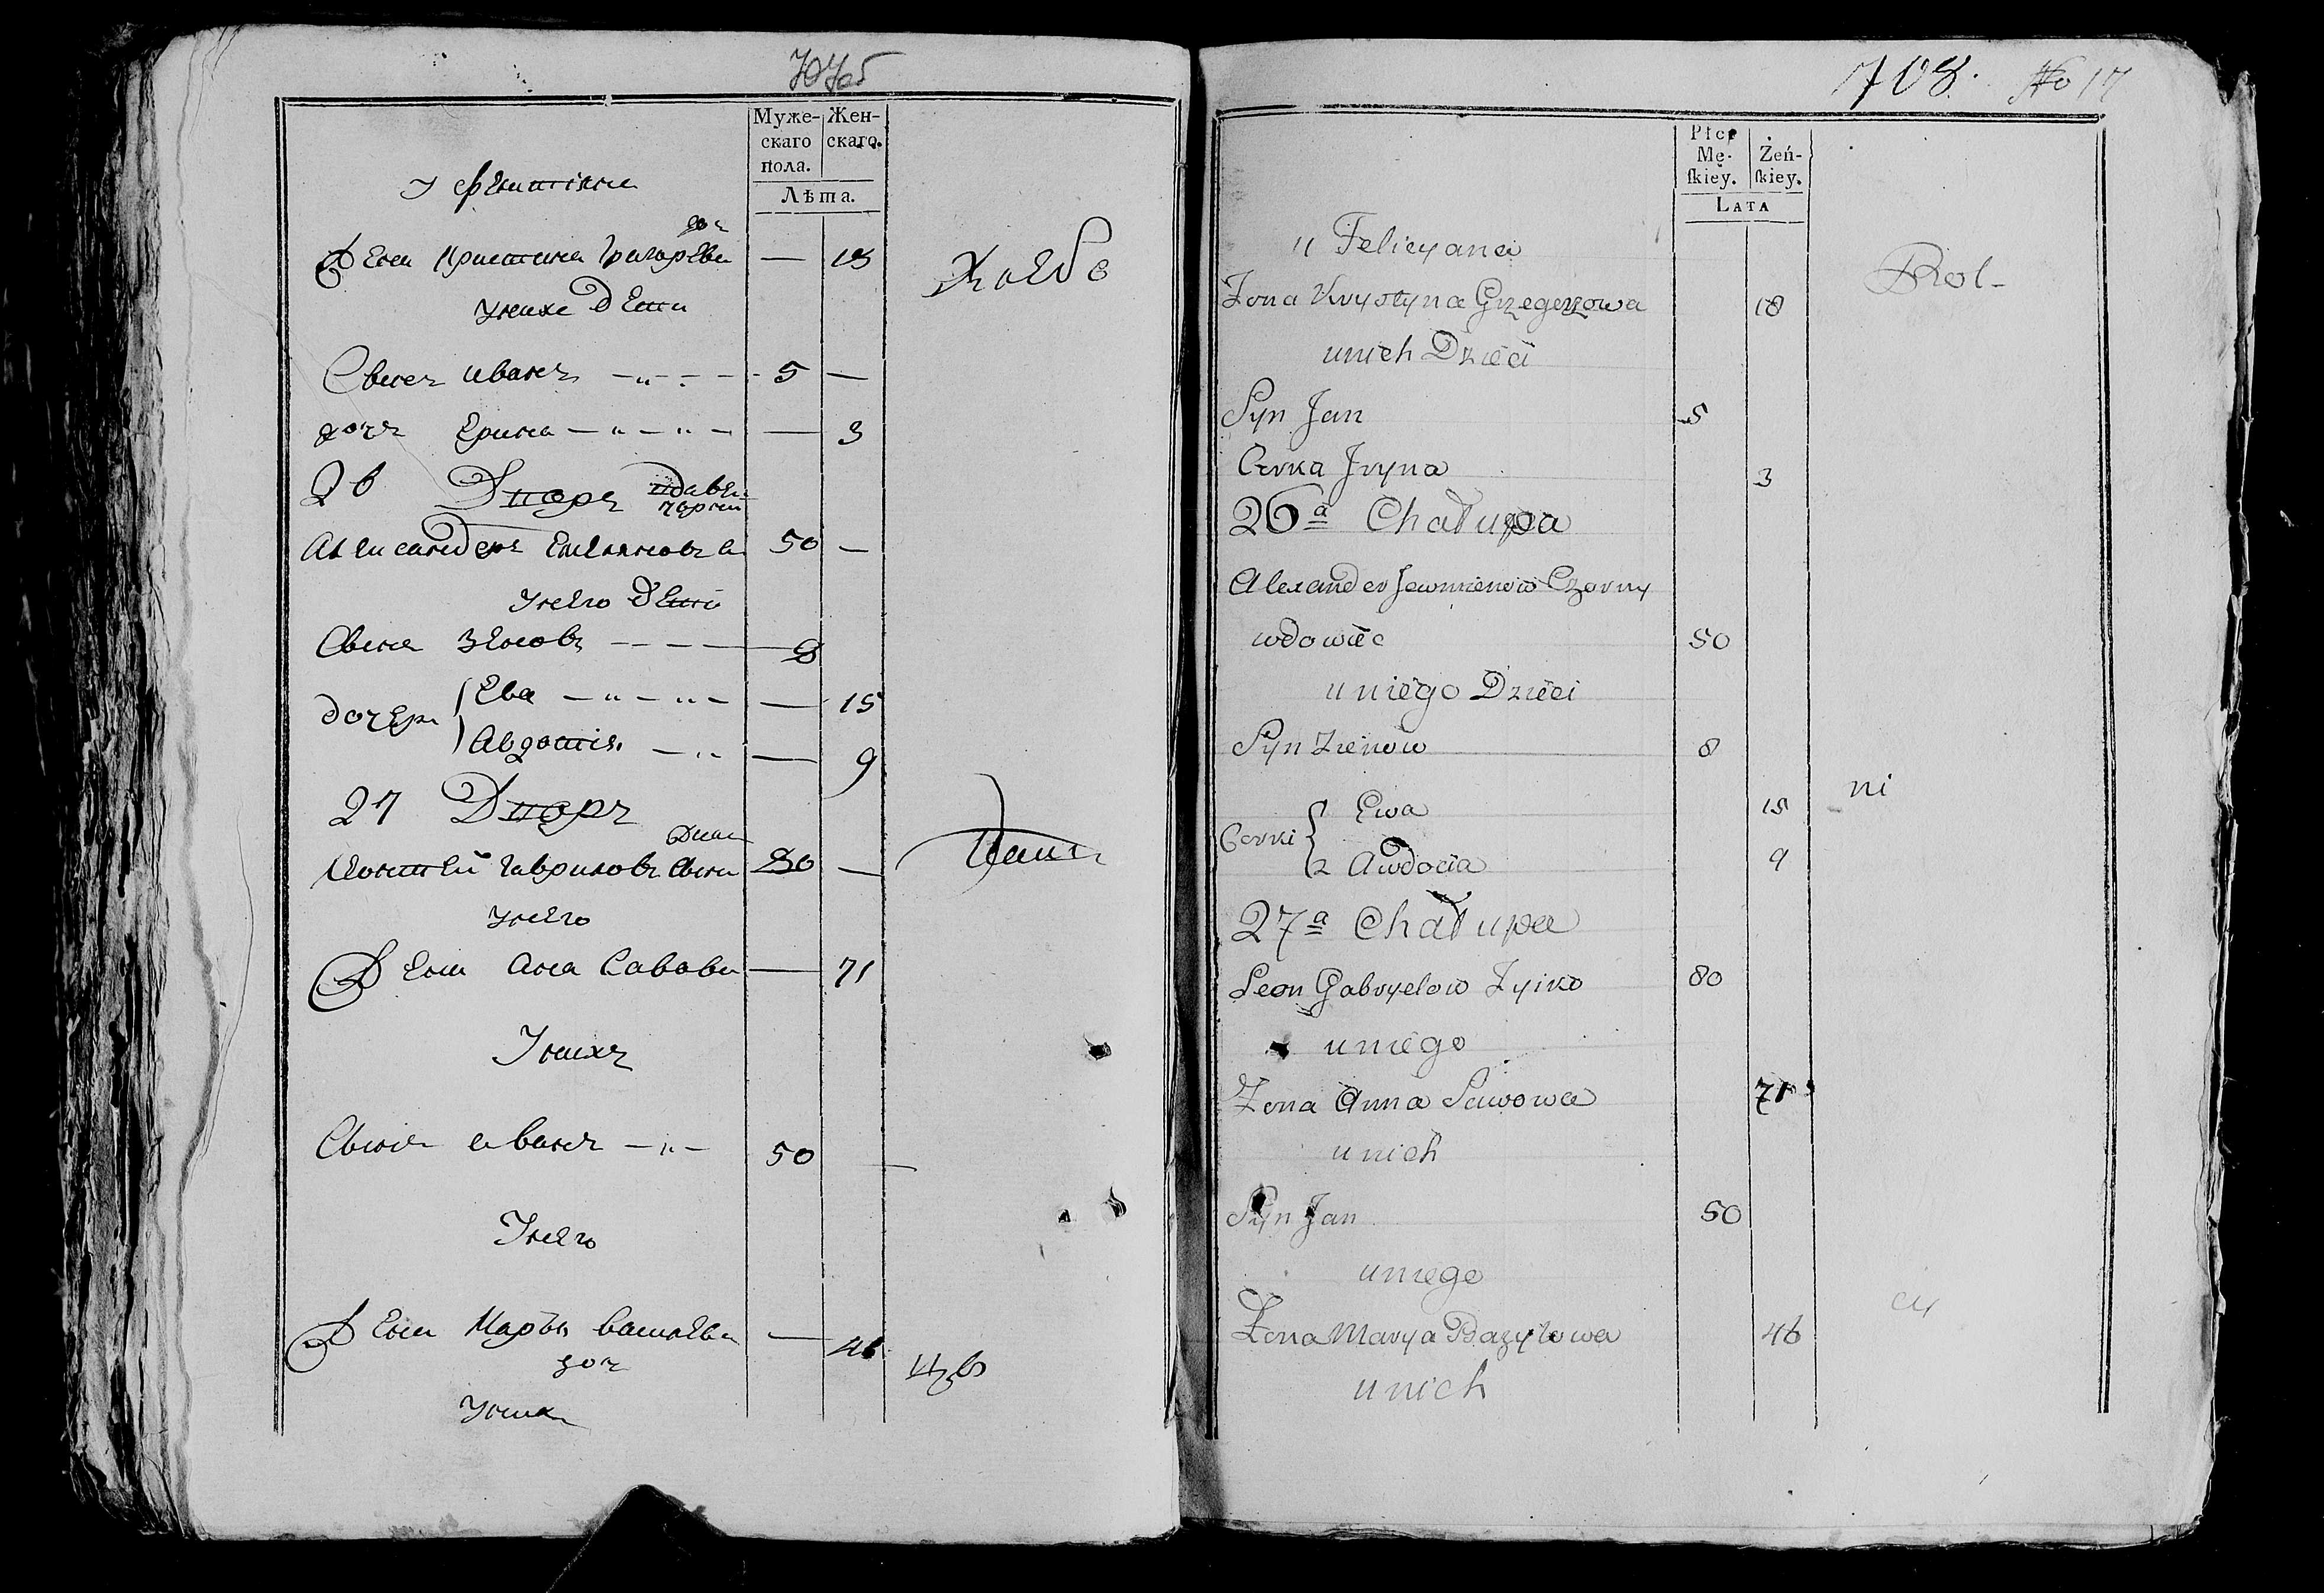 707об
Муже-
скаго
пола.
Жен-
скаго.
Лѣта.
У
доч
Жена Кристина Григорьева — 18
Хлебо
У нихъ дети
Сынъ Иванъ — „ — 5 —
дочь Ерина — „ — „ — — 3
26 Дворъ вдавецъ
чорни
Александеръ 50 —
У него дети
Сынъ Зеновъ — — — 8
дочери { Ева — „ — „ — — 15
Авдотия — „ — 9
27 Дворъ
Гавриловъ сынъ 80 —
У него
Жена Ана Савова — 71
У нихъ
Сынъ Иванъ — „ — 50 —
У него
Жена Маръя Василева — 46
доч
У нихъ
708. No 17
Płci
Mę-
ſkiey.
Żeń-
ſkiey.
LATA
u Felicyana
Rol-
Żona Krystyna Grzegorzowa 18
u nich Dzieci
Syn Jan 5
Corka Jryna 3
26a Chałupa
Alexander Czorny
wdowiec 50
u niego Dzieci
Syn Zienow 8
ni
Corki { Ewa 15
Awdocia 9
27a Chałupa
Leon Gabryelow Zyiko 80
u niego
Żona Anna Sawowa 71
u nich
Syn Jan 50
u niego
cy
Żona Marya Bazylowa 46
u nich